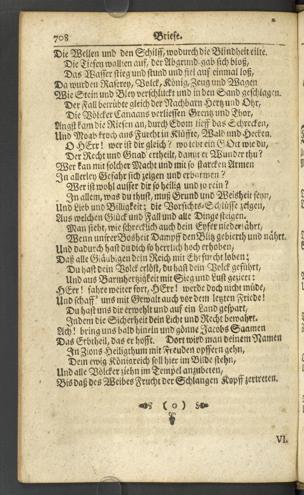 708 Briefe.
Die Wellen und den Schilff, wodurch die Blindheit eilte.
Die Tiefen wallten auf, der Abgrund gab sich bloß,
Das Wasser stieg und stund und fiel auf einmal loß,
Da wurden Raserey, Volck, König, Zeug und Wagen
Wie Stein und Bley verschluckt und in den Sand geschlagen.
Der Fall betrübte gleich der Nachbarn Hertz und Ohr,
Die Völcker Canaans verliessen Grentz und Thor,
Angst kam die Riesen an, durch Edom lieff das Schrecken,
Und Moab kroch aus Furcht in Klüffte, Wald und Hecken.
O HErr! wer ist dir gleich? wo lebt ein GOtt wie du,
Der Recht und Gnad ertheilt, damit er Wunder thu?
Wer kan mit solcher Macht und mit so starcken Armen
In allerley Gefahr sich zeigen und erbarmen?
Wer ist wohl ausser dir so heilig und so rein?
In allem, was du thust, muß Grund und Weisheit seyn,
Und Lieb und Billigkeit; die Vorsichts-Schlüsse zeigen,
Aus welchen Glück und Fall und alle Dinge steigen.
Man sieht, wie schrecklich auch dein Eyfer niederfährt,
Wenn unsrer Bosheit Dampff den Blitz gebiehrt und nährt.
Und dadurch hast du dich so herrlich hoch erhoben,
Daß alle Gläubigen dein Reich mit Ehrfurcht loben;
Du hast dein Volck erlöst, du hast dein Volck geführt,
Und aus Barmhertzigkeit mit Sieg und Lust geziert:
HErr! fahre weiter fort, HErr! werde doch nicht müde,
Und schaff' uns mit Gewalt auch vor dem letzten Friede!
Du hast uns dir erwehlt und auf ein Land gespart,
Indem die Sicherheit dein Licht und Recht bewahrt.
Ach! bring uns bald hinein und gönne Jacobs Saamen
Das Erbtheil, das er hofft. Dort wird man deinem Namen
In Zions Heiligthum mit Freuden opffern gehn,
Dein ewig Königreich soll hier im Bilde stehn,
Und alle Völcker ziehn im Tempel anzubeten,
Bis daß des Weibes Frucht der Schlangen Kopff zertreten.
( o )
VI.